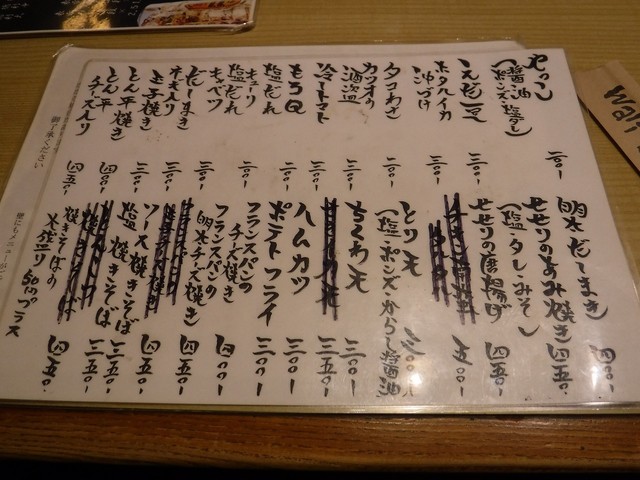 やっこ
(醤油・ポンズ・塩ダレ)
二〇〇-
えだ豆
ホタルイカ
沖づけ
三〇〇-
タコわさ
二〇〇-
カツオの
酒盗
三〇〇-
冷トマト
三〇〇-
もろQ
二〇〇-
塩だれ
キューリ
二〇〇-
塩だれ
キャベツ
三〇〇-
だしまき
三〇〇-
ネギ入り
玉子焼き
三〇〇-
とん平焼き
四〇〇-
とん平
チーズ入り
四五〇-
明太だしまき
四〇〇-
せせりのあみ焼き
(塩・タレ・みそ)
四五〇-
せせりの唐揚げ
四五〇-
五〇〇-
とり天
(塩・ポンズ・からし醤油)
三〇〇-
ちくわ天
三〇〇-
三五〇-
ハムカツ
三〇〇-
ポテトフライ
三〇〇-
フランスパンの
チーズ焼き
四〇〇-
フランスパンの
明太チーズ焼き
四五〇-
ソース焼きそば
四五〇-
塩焼きそば
三五〇-
三五〇-
焼きそばの
大盛り 50円プラス
四五〇-
御了承ください
壁にもメニューが